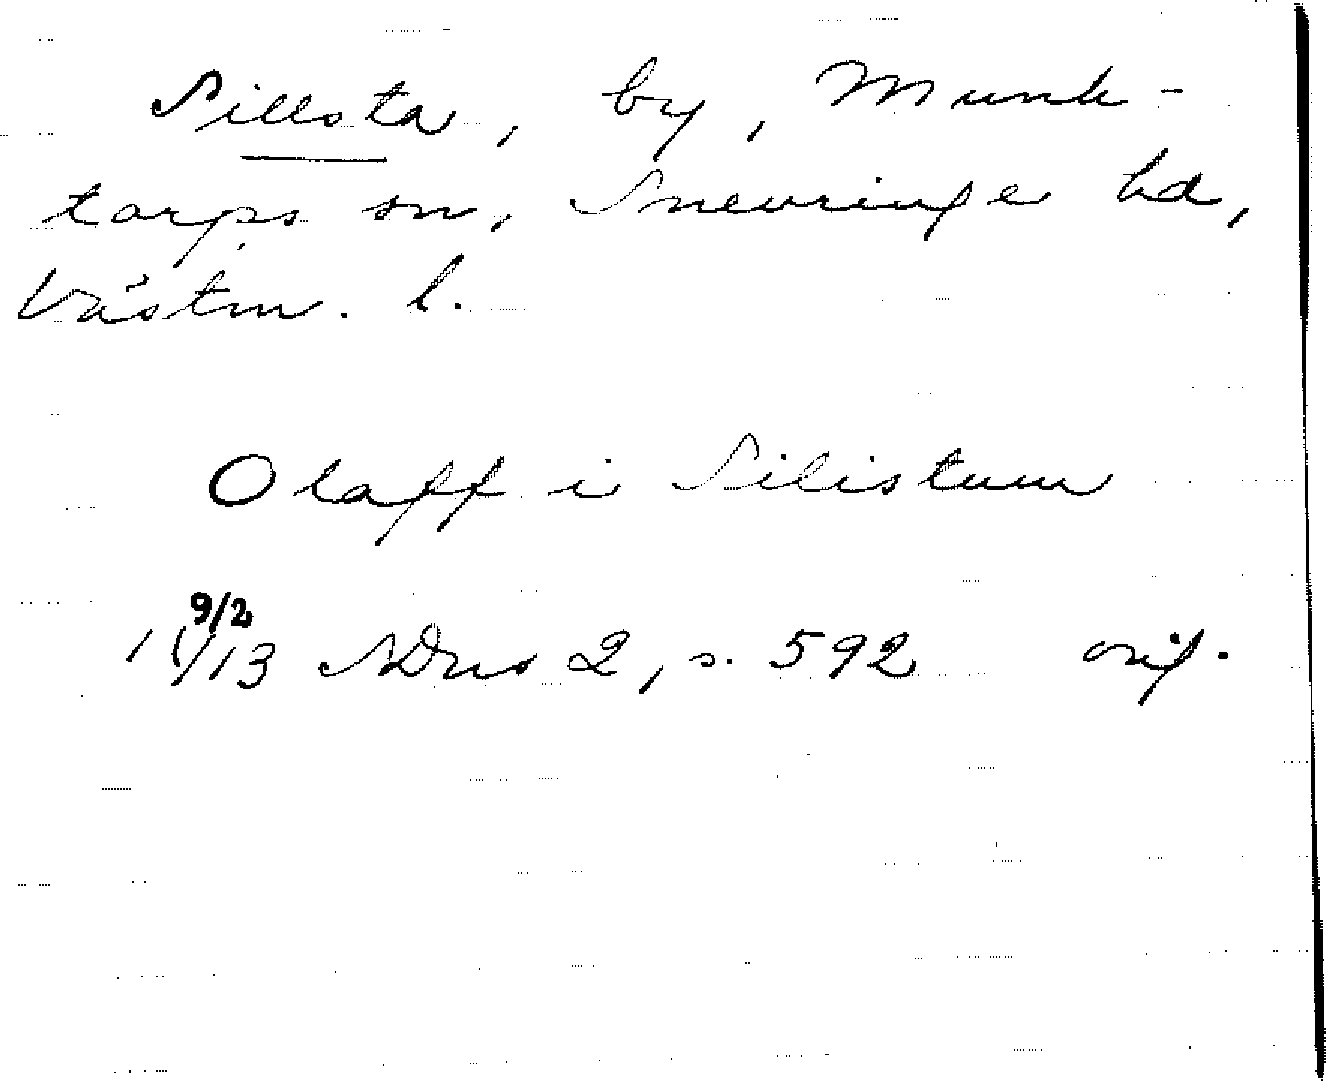 Sillsta, by, Munk-
torps sn, Snevringe hd,
Västm. l.
Olaff i Silistum
9/2
1413 SDns 2, s. 592 orig.